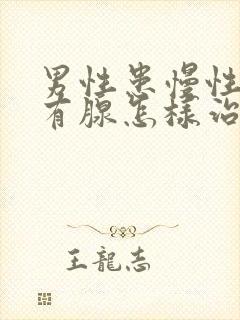 男性患慢性
有腺怎样治
王龍志